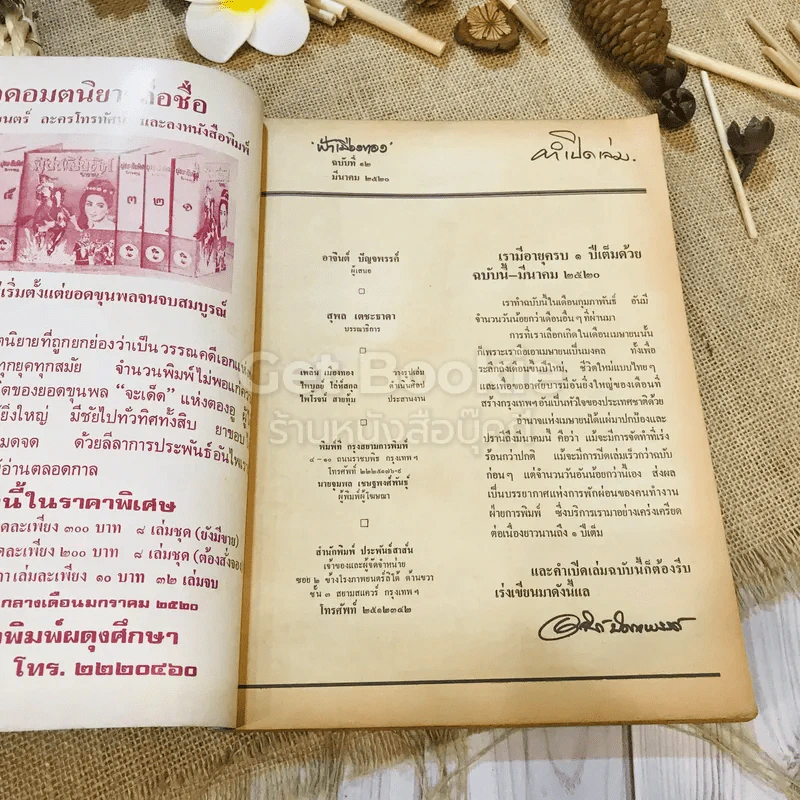 ดอมตนิยายลือชื่อ
ยนตร์ ละครโทรทัศน์ และลงหนังสือพิมพ์
๓
๒
๑
เริ่มตั้งแต่ยอดขุนพลจนจบสมบูรณ์
นิยายที่ถูกยกย่องว่าเป็นวรรณคดีเอกแห่ง
ทุกยุคทุกสมัย จำนวนพิมพ์ไม่พอแก่
ของยอดขุนพล “จะเด็ด” แห่งตองอู
ยิ่งใหญ่ มีชัยไปทั่วทิศทั้งสิบ
มดจด ด้วยลีลาการประพันธ์อันไพเราะ
อ่านตลอดกาล
นี้ในราคาพิเศษ
ละเพียง ๓๐๐ บาท ๘ เล่มชุด (ยังมีขาย)
ละเพียง ๒๐๐ บาท ๘ เล่มชุด (ต้องสั่งจอง)
เล่มละเพียง ๑๐ บาท ๓๒ เล่มจบ
กลางเดือนมกราคม ๒๕๒๐
พิมพ์ผดุงศึกษา
โทร. ๒๒๒๐๔๖๐
"ฟ้าเมืองทอง"
ฉบับที่ ๑๒
มีนาคม ๒๕๒๐
คำเปิดเล่ม.
อาจินต์ ปัญจพรรค์
ผู้เสนอ
สุพล เตชะธาดา
บรรณาธิการ
เพลิน เมืองทอง รองรูปเล่ม
ไพบูลย์ ดำเนินศิลป์
ไพโรจน์ สายทุ้ม ประสานงาน
พิมพ์ที่ กรุงสยามการพิมพ์
๔-๑๐ ถนนราชบพิธ กรุงเทพฯ
โทรศัพท์ ๒๒๒๕๑๗๖-๙
นายจุมพล เชษฐพงศ์พันธุ์
ผู้พิมพ์ผู้โฆษณา
สำนักพิมพ์ ประพันธ์สาส์น
เจ้าของและผู้จัดจำหน่าย
ซอย ๒ ข้างโรงภาพยนตร์ลิโด้ ด้านขวา
ชั้น ๓ สยามสแควร์ กรุงเทพฯ
โทรศัพท์ ๒๕๑๒๓๔๒
เรามีอายุครบ ๑ ปีเต็มด้วย
ฉบับนี้—มีนาคม ๒๕๒๐
เราทำฉบับนี้ในเดือนกุมภาพันธ์ อันมี
จำนวนวันน้อยกว่าเดือนอื่นๆ ที่ผ่านมา
การที่เราเลือกเกิดในเดือนเมษายนนั้น
ก็เพราะเราถือเอาเมษายนเป็นมงคล ทั้งเพื่อ
ระลึกถึงเดือนขึ้นปีใหม่, ชีวิตใหม่แบบไทยๆ
และเพื่อขออาศัยบารมีอันยิ่งใหญ่ของเดือนที่
สร้างกรุงเทพฯ อันเป็นหัวใจของประเทศชาติด้วย
อำนาจแห่งเมษายนได้แผ่มาปกป้องและ
ปรานีถึงมีนาคมนี้ คือว่า แม้จะมีการจัดทำที่เร่ง
ร้อนกว่าปกติ แม้จะมีการปิดเล่มเร็วกว่าฉบับ
ก่อนๆ แต่จำนวนวันอันน้อยกว่านี้เอง ส่งผล
เป็นบรรยากาศแห่งการพักผ่อนของคนทำงาน
ฝ่ายการพิมพ์ ซึ่งบริการเรามาอย่างเคร่งเครียด
ต่อเนื่องยาวนานถึง ๑ ปีเต็ม
และคำเปิดเล่มฉบับนี้ก็ต้องรีบ
เร่งเขียนมาดังนี้แล
Get Book
ร้านหนังสือบุ๊คดี